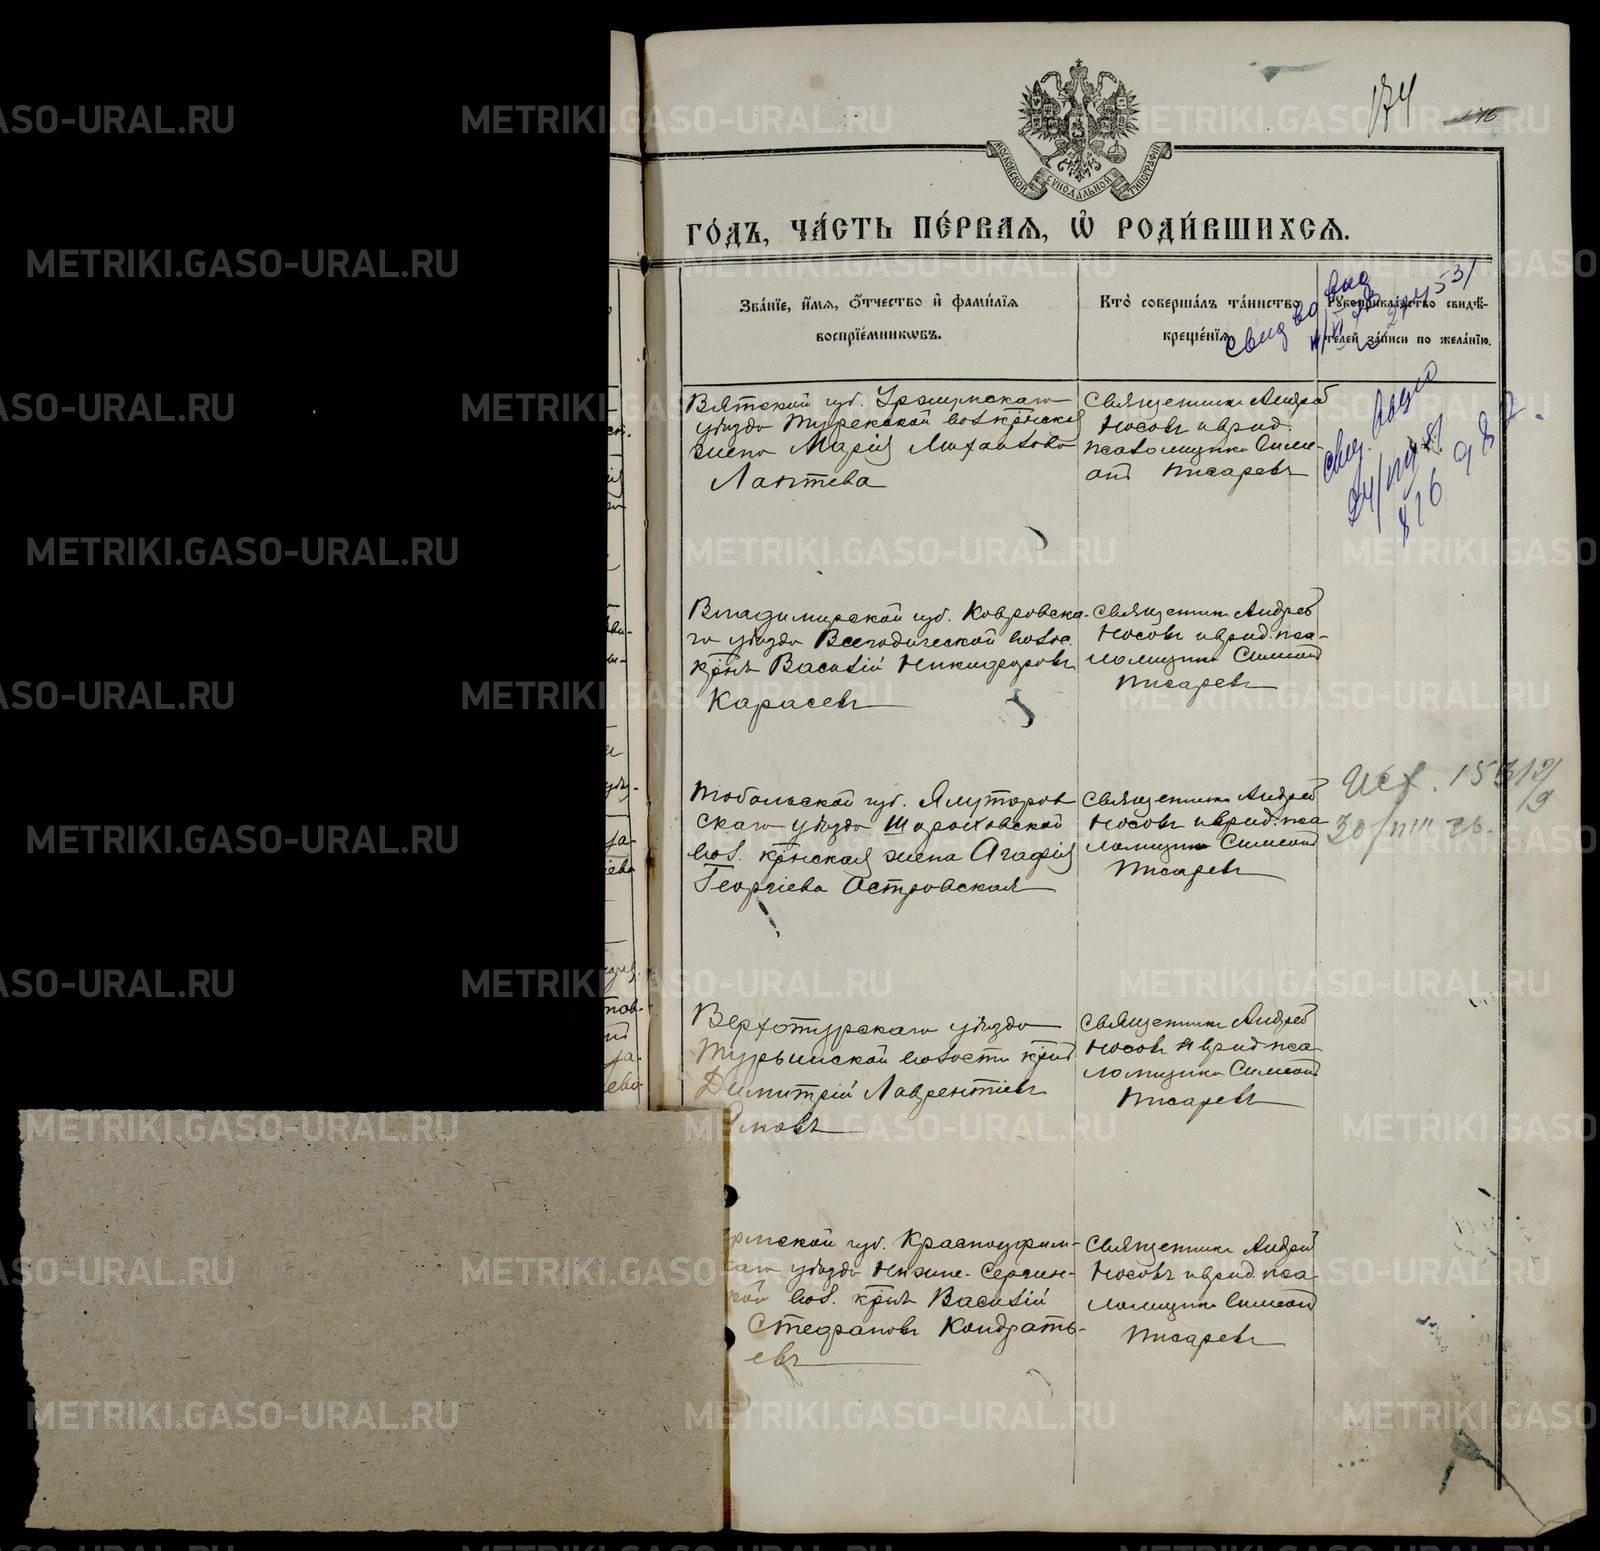 174
МОСКОВСКОЙ СѴНОДАЛЬНОЙ ТИПОГРАФІИ
ГО́ДЪ, ЧА́СТЬ ПЕ́РВАЯ, Ѡ҆ РОДИ́ВШИХСЯ.
Зва́нїе, и҆́мѧ, ѻ҆́тчество и҆ фами́лїѧ
воспрїе́мникѡвъ.
Кто̀ соверша́лъ та́инство
креще́нїѧ.
Рꙋкоприкла́дство свидѣ́-
телей за́писи по жела́нїю.
Вятской губ. Уржумскаго
уѣзда Турекской вол крѣнская
жена Марія Михаилова
Лаптева
Священникъ Андрей
Носовъ и врид.
псаломщика Симе-
онъ Писаревъ
Владимирской губ. Ковровска-
го уѣзда Всегодической волос.
крнъ Василій Никифоровъ
Карасевъ
Священникъ Андрей
Носовъ и врид. пса-
ломщика Симеонъ
Писаревъ
Тобольской губ. Ялуторов
скаго уѣзда Шороховской
вол. крнская жена Агафія
Георгіева Островская
Священникъ Андрей
Носовъ и врид. пса
ломщика Симеонъ
Писаревъ
Исх. 153
30/VIII 26.
Верхотурскаго уѣзда
Турьинской волости крнъ
Димитрій Лаврентіевъ
Священникъ Андрей
Носовъ и врид пса
ломщика Симеонъ
Писаревъ
рмской губ. Красноуфим-
скаго уѣзда Нижне-Сергин-
ской вол. крнъ Василій
Стефановъ Кондрать-
евъ
Священникъ Андрей
Носовъ и врид пса
ломщика Симеонъ
Писаревъ
METRIKI.GASO-URAL.RU